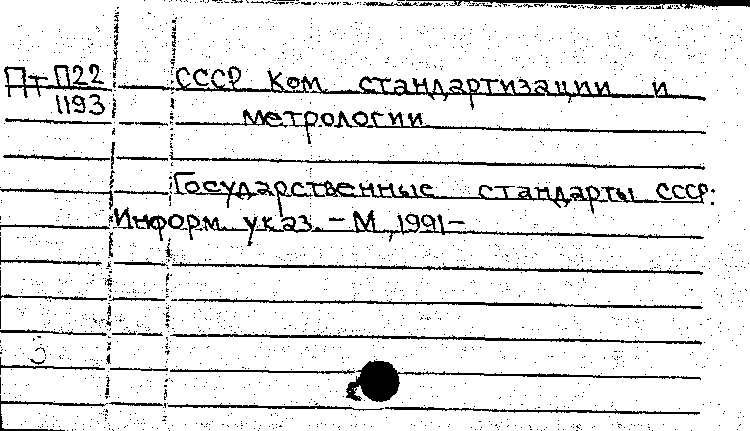 Пт П22 СССР Ком. стандартизации и
1193 метрологии
Государственные стандарты СССР:
Информ. указ. – М., 1991–